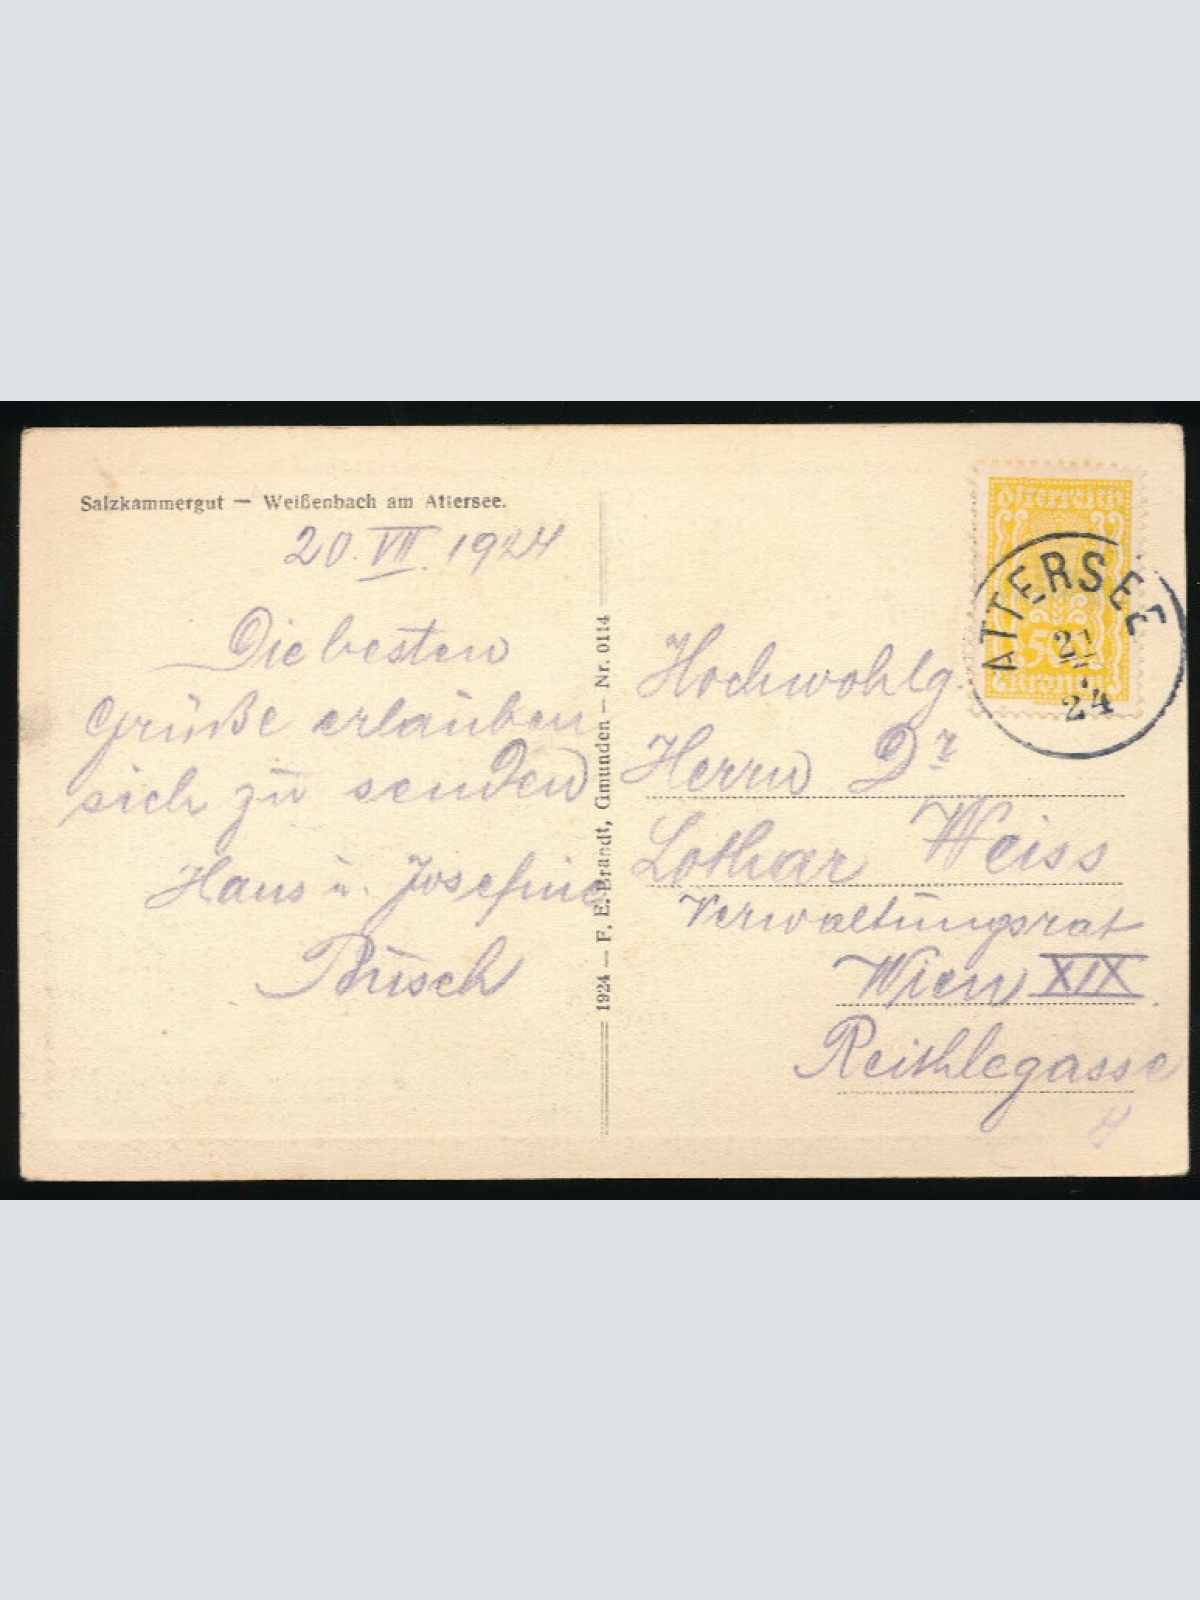 Salzkammergut — Weißenbach am Attersee.
20. VII. 1924
Die besten
Grüße erlauben
sich zu senden
Hans u. Josefine
Busch
1924 — F. E. Brandt, Gmunden — Nr. 0114
Österreich
50
Kronen
ATTERSEE
21
24
Hochwohlg.
Herrn Dr
Lothar Weiss
Verwaltungsrat
Wien XIX.
Reithlegasse